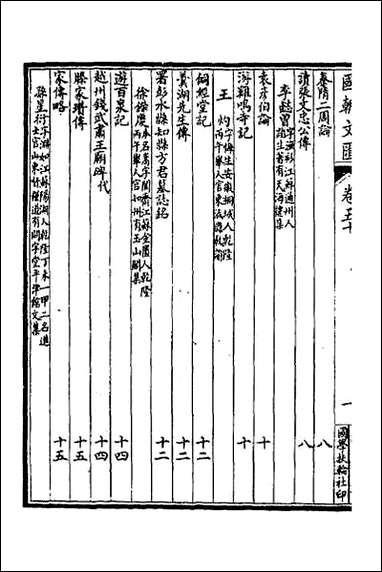 國朝文匯 卷五十 一 國學扶輪社印
秦隋二周論 八
讀張文忠公傳 八
李懿曾 字漁衫江蘇通州人諸生著有天海樓集
袁彥伯論 十
游雞鳴寺記 十
王灼 字悔生安徽桐城人乾隆丙午舉人官東流教諭
銅姬堂記 十二
黃湖先生傳 十二
署彭水縣知縣方君墓誌銘 十二
徐鑅慶 本名嵩字閬齋江蘇金匱人乾隆丙午舉人官知州有玉山閣集
遊百泉記 十四
越州錢武肅王廟碑代 十四
滕家瓚傳 十五
家傳略 十五
孫星衍 字淵如江蘇陽湖人乾隆丁未一甲二名進士官山東督糧道有問字堂平津館文集